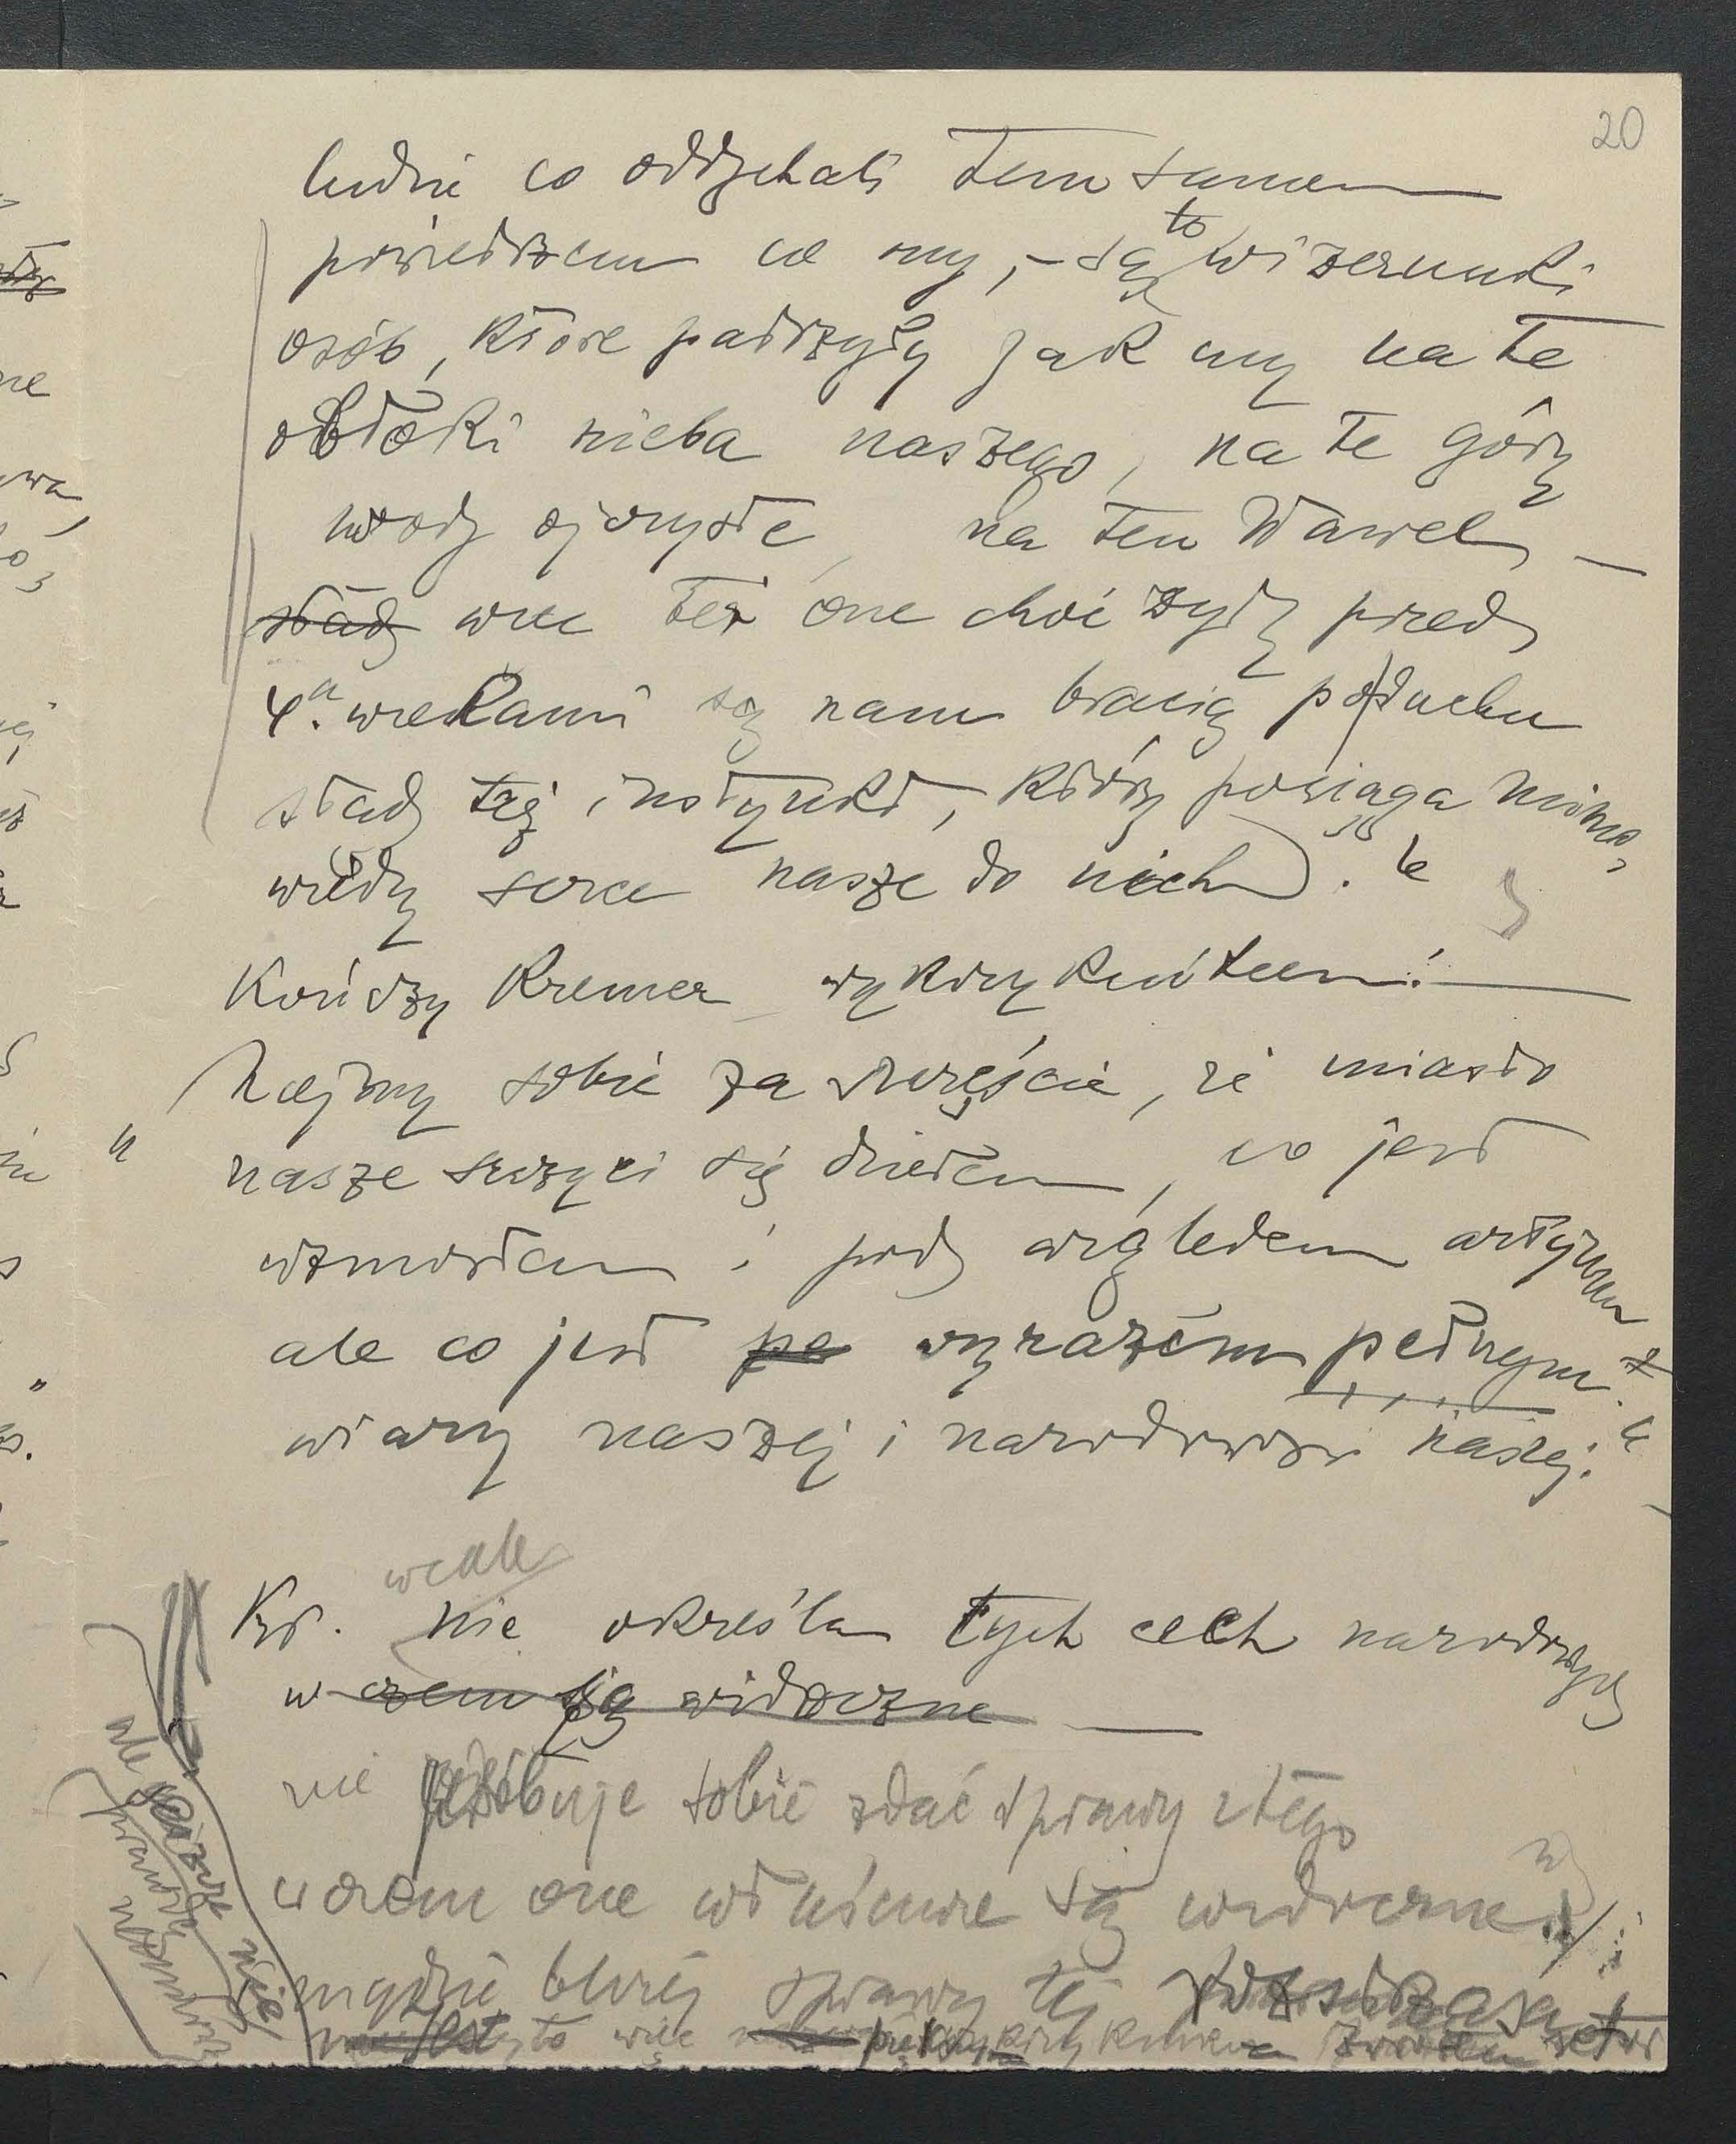 20
ludzie co oddychali tem samem
powietrzem co my, – są to wizerunki
osób, które patrzyły jak my na te
obłoki nieba naszego, na te góry
wody ojczyste, na ten Wawel –
stąd więc też one choć żyły przed
4. wiekami są nam bracią po duchu
stąd tej instynkt, który pociąga mimo
wiedzy serce nasze do nich).
Kończy Kremer wykrzyknikiem:
" Miejmy sobie za szczęście, że miasto
nasze szczyci się dziełem, co jest
wzniosłem i pod względem artyzmu
ale co jest pe wyrazem pełnym
wiary naszej i narodowości naszej."
wcale
Kr. nie określa tych cech narodowych
w czem są widoczne –
nie próbuje sobie zdać sprawy z tego
w czem one właściwie są widoczne
nigdzie bliżej sprawy tej
to więc
ale